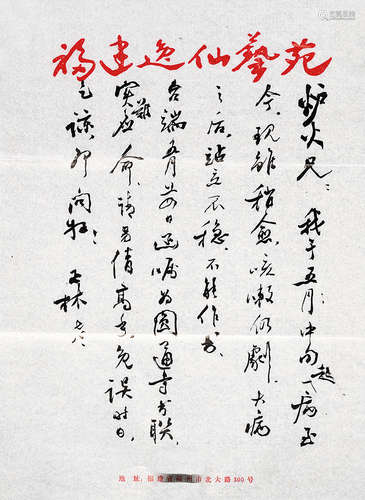 福建逸仙藝苑
炉火兄：我于五月中旬起病至
今，现雖稍愈，咳嗽仍劇，大病
之后，站立不稳，不能作书，
台端五月 日函嘱为圓通寺书联，
实難应命，请另倩高手，免误时日，
乞谅，即问好！
林
地址：福建省福州市北大路100号